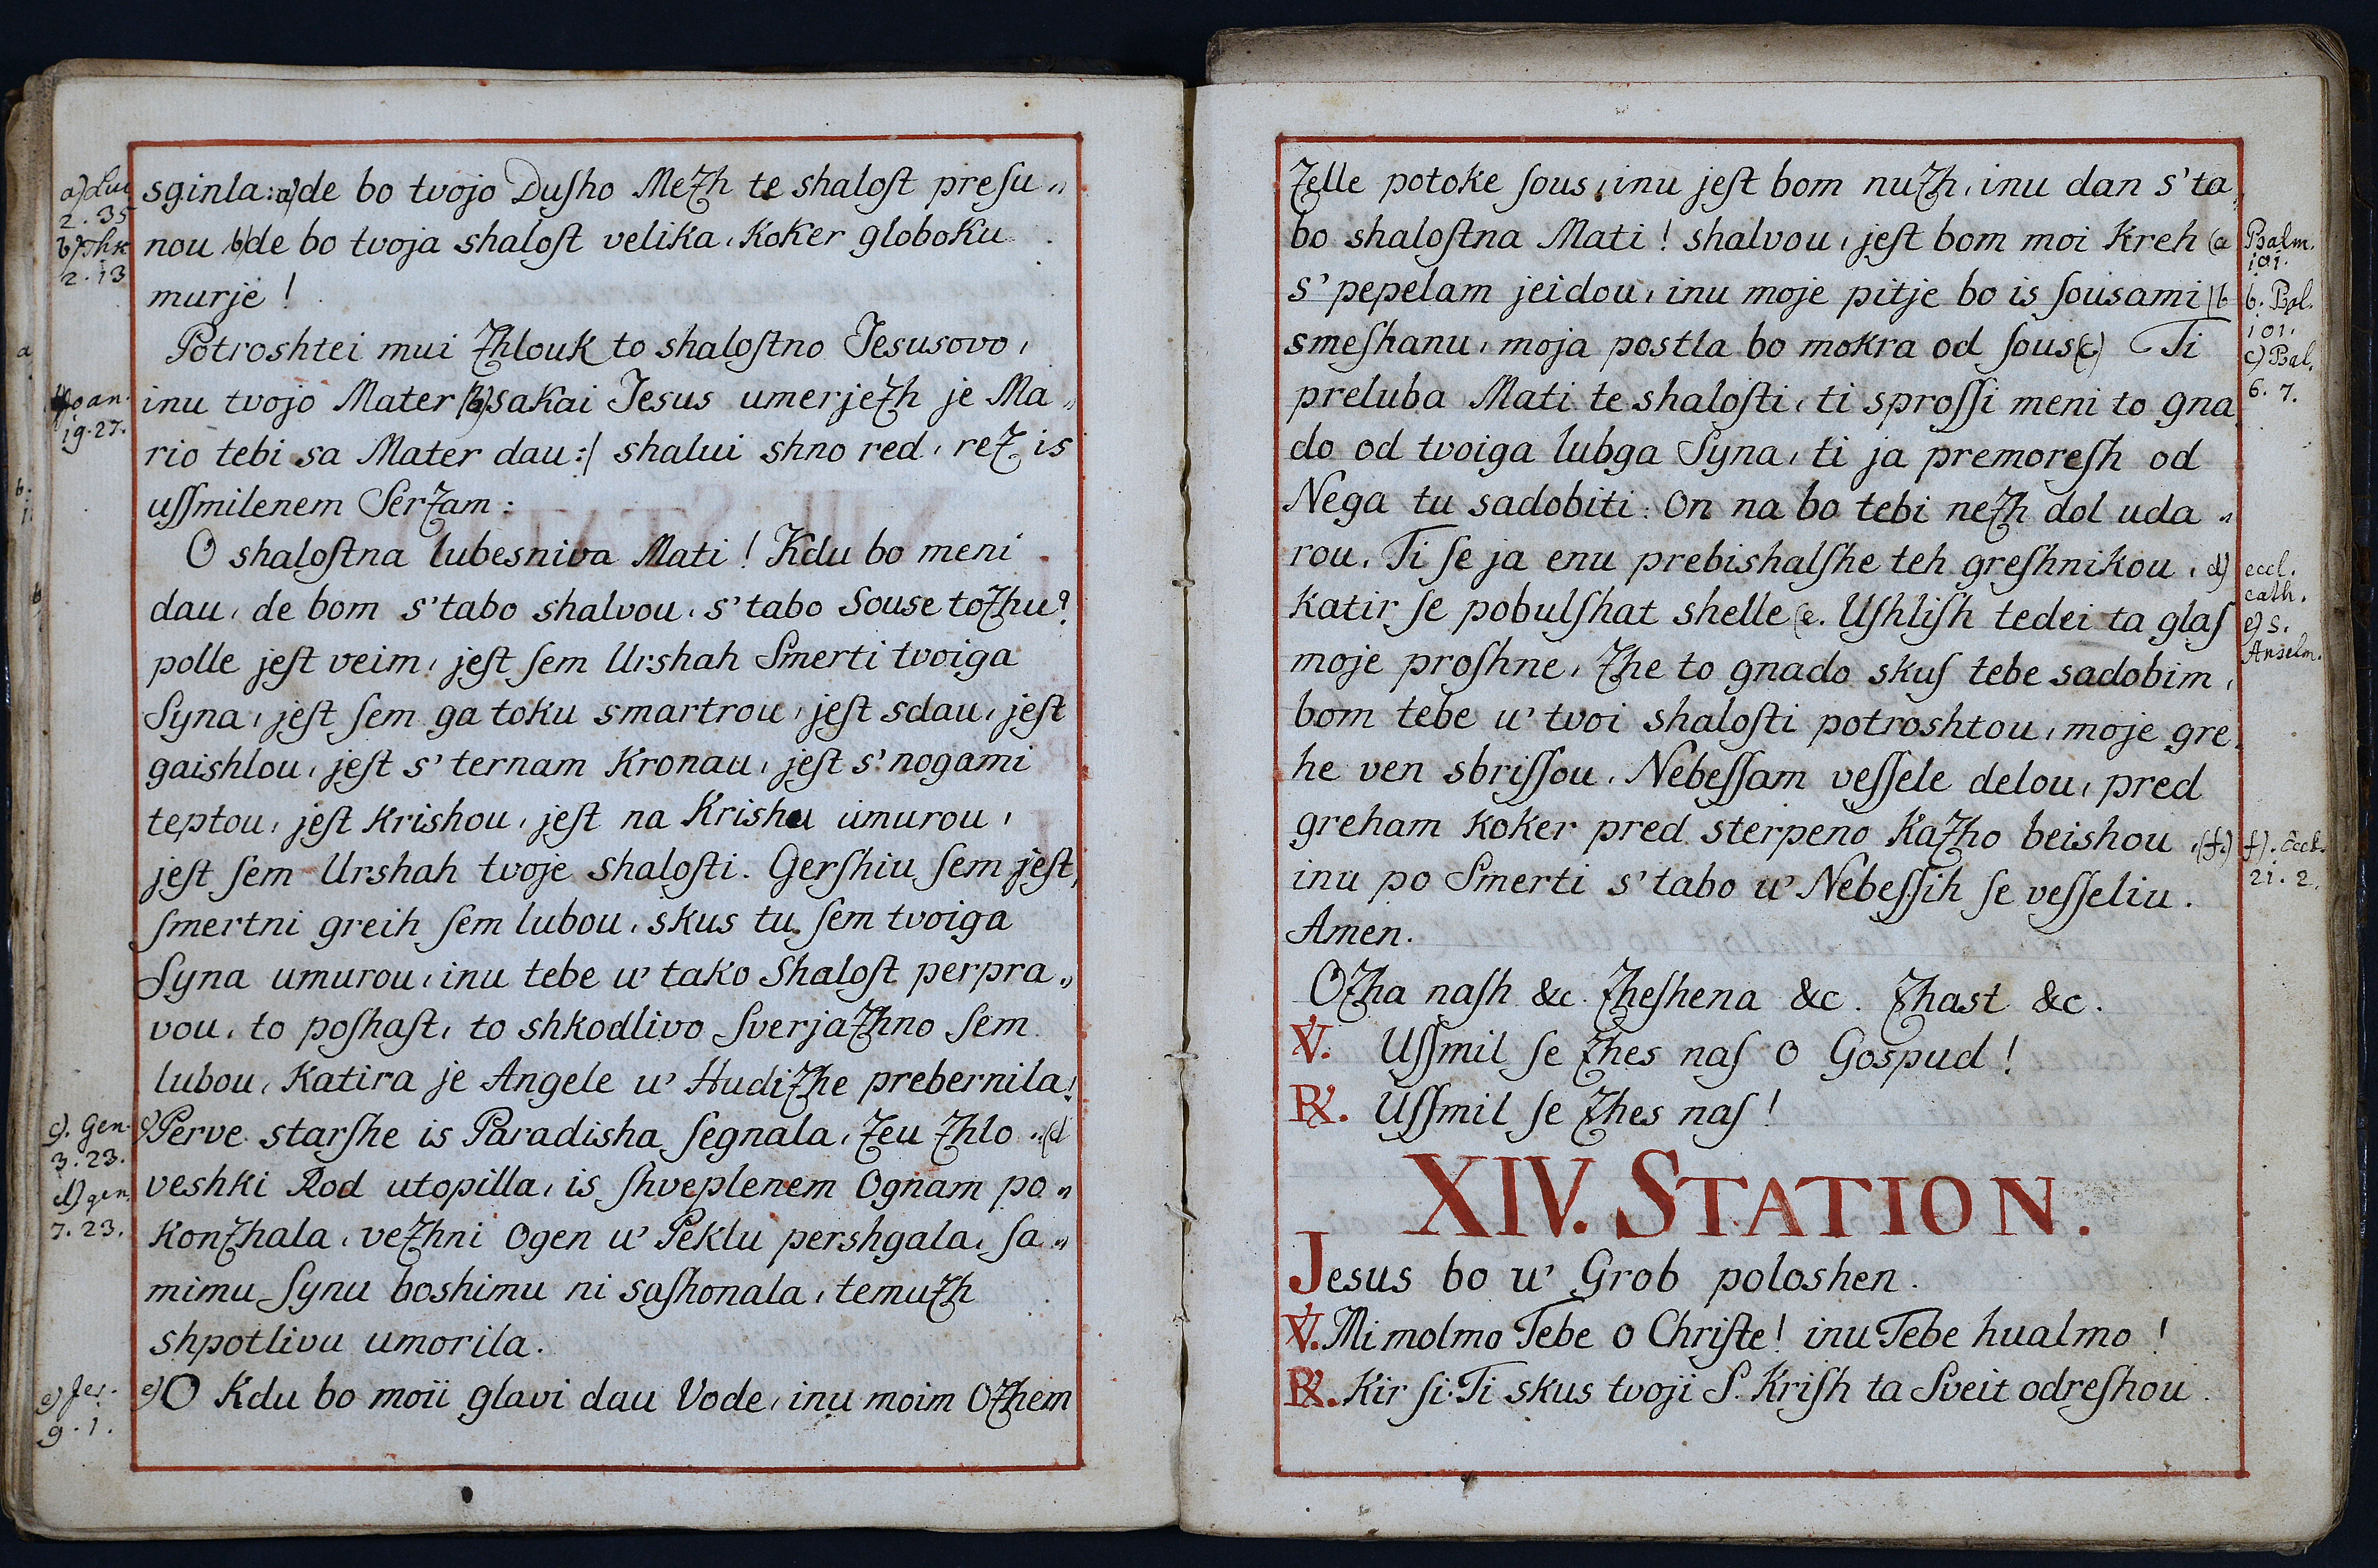 a) Luc
2. 35
b) Thr
2. 13
sginla: a) de bo tvojo Duſho Mezh te shaloſt preſu„
nou b) de bo tvoja shaloſt velika, koker globoku
murje!
Potroshtei mui Zhlouk to shaloſtno Jesusovo,
Joan.
19. 27.
inu tvojo Mater sakai Jesus umerjezh je Ma„
rio tebi sa Mater dau:/ shalui shno red, rez is
uſſmilenem Serzam:
O shaloſtna lubesniva Mati! Kdu bo meni
dau, de bom s'tabo shalvou, s'tabo Souse tozhu?
polle jeſt veim, jeſt ſem Urshah Smerti tvoiga
Syna, jeſt ſem ga toku smartrou, jeſt sdau, jeſt
gaishlou, jeſt s'ternam Kronau, jeſt s'nogami
teptou, jeſt krishou, jeſt na Krishu umurou,
jeſt ſem Urshah tvoje shaloſti. Gerſhiu ſem jeſt,
ſmertni greih ſem lubou, skus tu ſem tvoiga
Syna umurou, inu tebe u' tako Shaloſt perpra„
vou, to poſhaſt, to shkodlivo Sverjazhno ſem
lubou, katira je Angele u' Hudizhe prebernila!
c). Gen.
3. 23.
d) gen.
7. 23.
c) Perve starſhe is Paradisha ſegnala, zeu Zhlo„ (d
veshki Rod utopilla, is ſhveplenem Ognam po„
konzhala, vezhni Ogen u' Peklu pershgala, ſa„
mimu Synu boshimu ni saſhonala, temuzh
shpotlivu umorila.
e) Jer.
9. 1.
e) O Kdu bo moii glavi dau Vode, inu moim Ozhem
Zelle potoke ſous, inu jeſt bom nuzh, inu dan s'ta„
bo shaloſtna Mati! shalvou, jeſt bom moi Kreh (a
Psalm.
101.
s'pepelam jeidou, inu moje pitje bo is ſousami (b
b. Psl.
101.
smeſhanu, moja postla bo mokra od ſous (c) Ti
c) Psal.
6. 7.
preluba Mati te shaloſti, ti sproſſi meni to gna
do od tvoiga lubga Syna, ti ja premoreſh od
Nega tu sadobiti: On na bo tebi nezh dol uda„
rou, Ti ſe ja enu prebishalſhe teh greſhnikou, d)
eccl.
cath.
katir ſe pobulſhat shelle (e. Uſhliſh tedei ta glaſ
e) S.
Anselm.
moje proſhne, zhe to gnado skuſ tebe sadobim,
bom tebe u' tvoi shaloſti potroshtou, moje gre„
he ven sbriſſou, Nebeſſam veſſele delou, pred
greham koker pred sterpeno Kazho beishou, (f.)
f). Eccl.
21. 2.
inu po Smerti s'tabo u' Nebeſſih ſe veſſeliu.
Amen.
Ozha naſh &c. Zheſhena &c. Zhast &c.
℣. Uſſmil ſe zhes naſ o Gospud!
℟. Uſſmil ſe zhes naſ!
XIV. STATION.
Jesus bo u' Grob poloshen.
℣. Mi molmo Tebe o Chriſte! inu Tebe hualmo!
℟. Kir ſi Ti skus tvoji S. Kriſh ta Sveit odreſhou.